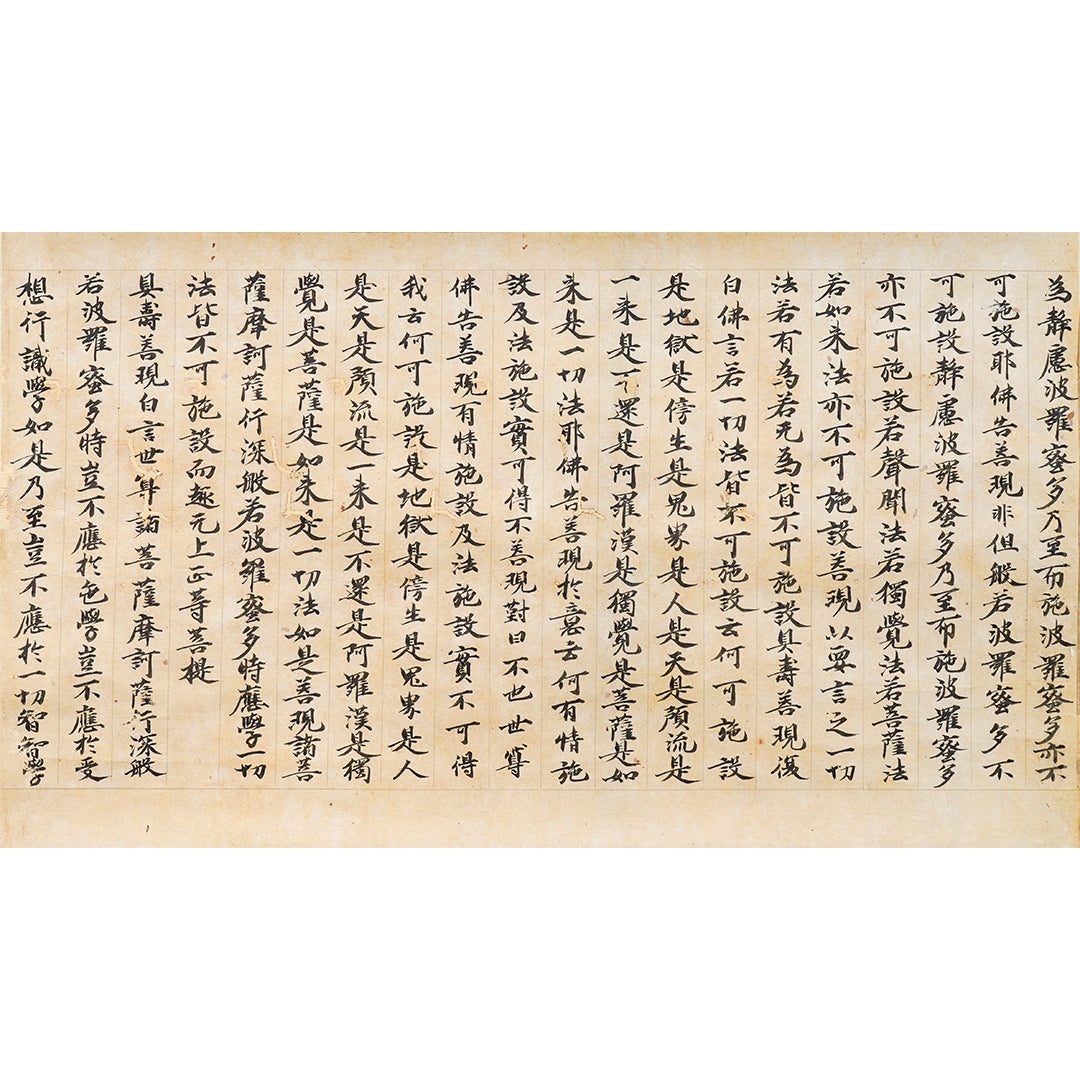 為靜慮波羅蜜多乃至布施波羅蜜多亦不
可施設耶佛告善現非但般若波羅蜜多不
可施設靜慮波羅蜜多乃至布施波羅蜜多
亦不可施設若聲聞法若獨覺法若菩薩法
若如来法亦不可施設善現以要言之一切
法若有為若无為皆不可施設具壽善現復
白佛言若一切法皆不可施設云何可施設
是地獄是傍生是鬼界是人是天是預流是
一来是不還是阿羅漢是獨覺是菩薩是如
来是一切法耶佛告善現於意云何有情施
設及法施設實可得不善現對曰不也世尊
佛告善現有情施設及法施設實不可得
我云何可施設是地獄是傍生是鬼界是人
是天是預流是一来是不還是阿羅漢是獨
覺是菩薩是如来是一切法如是善現諸菩
薩摩訶薩行深般若波羅蜜多時應學一切
法皆不可施設而趣无上正等菩提
具壽善現白言世尊諸菩薩摩訶薩行深般
若波羅蜜多時豈不應於色學豈不應於受
想行識學如是乃至豈不應於一切智智學